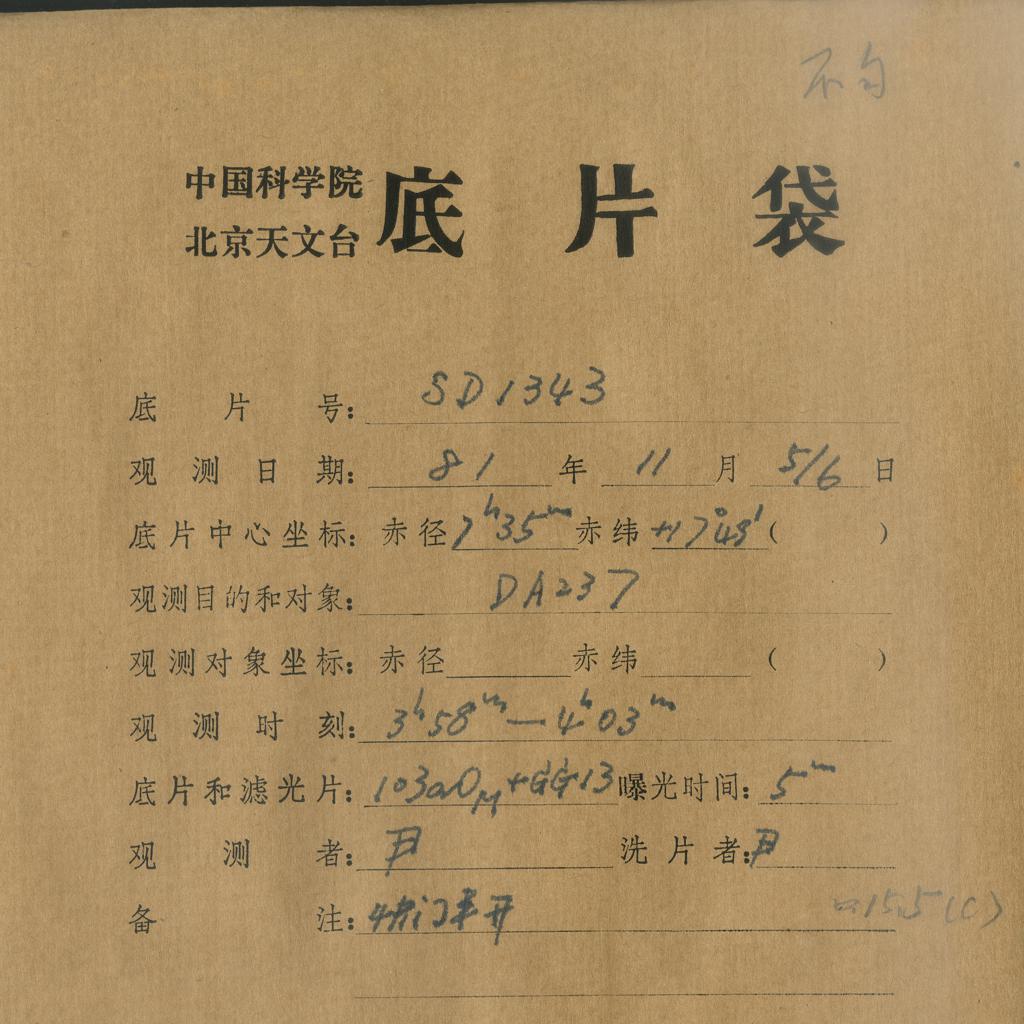 不匀
中国科学院
北京天文台 底片袋
底片号: SD1343
观测日期: 81年11月5/6日
底片中心坐标: 赤径7h35m赤纬+17°48′( )
观测目的和对象: DA237
观测对象坐标: 赤径 赤纬 ( )
观测时刻: 3h58m—4h03m
底片和滤光片: 103aOM+GG13 曝光时间: 5m
观测者: 尹 洗片者: 尹
备注: 快门未开
15.5(C)